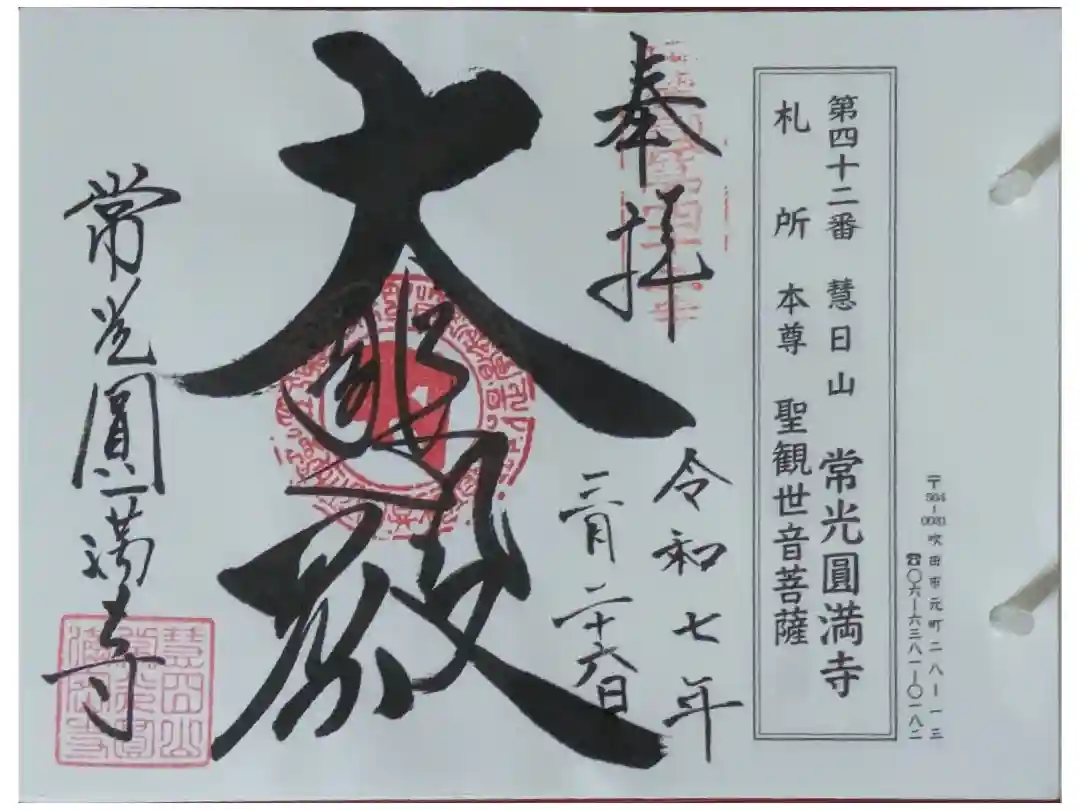 〒564-0031 吹田市元町二八-一三
☎〇六-六三八一-〇一八二
第四十二番 慧日山 常光圓満寺
札所本尊 聖観世音菩薩
奉拝
令和七年
三月二十六日
大悲殿
常光圓満寺
慧日山
常光圓